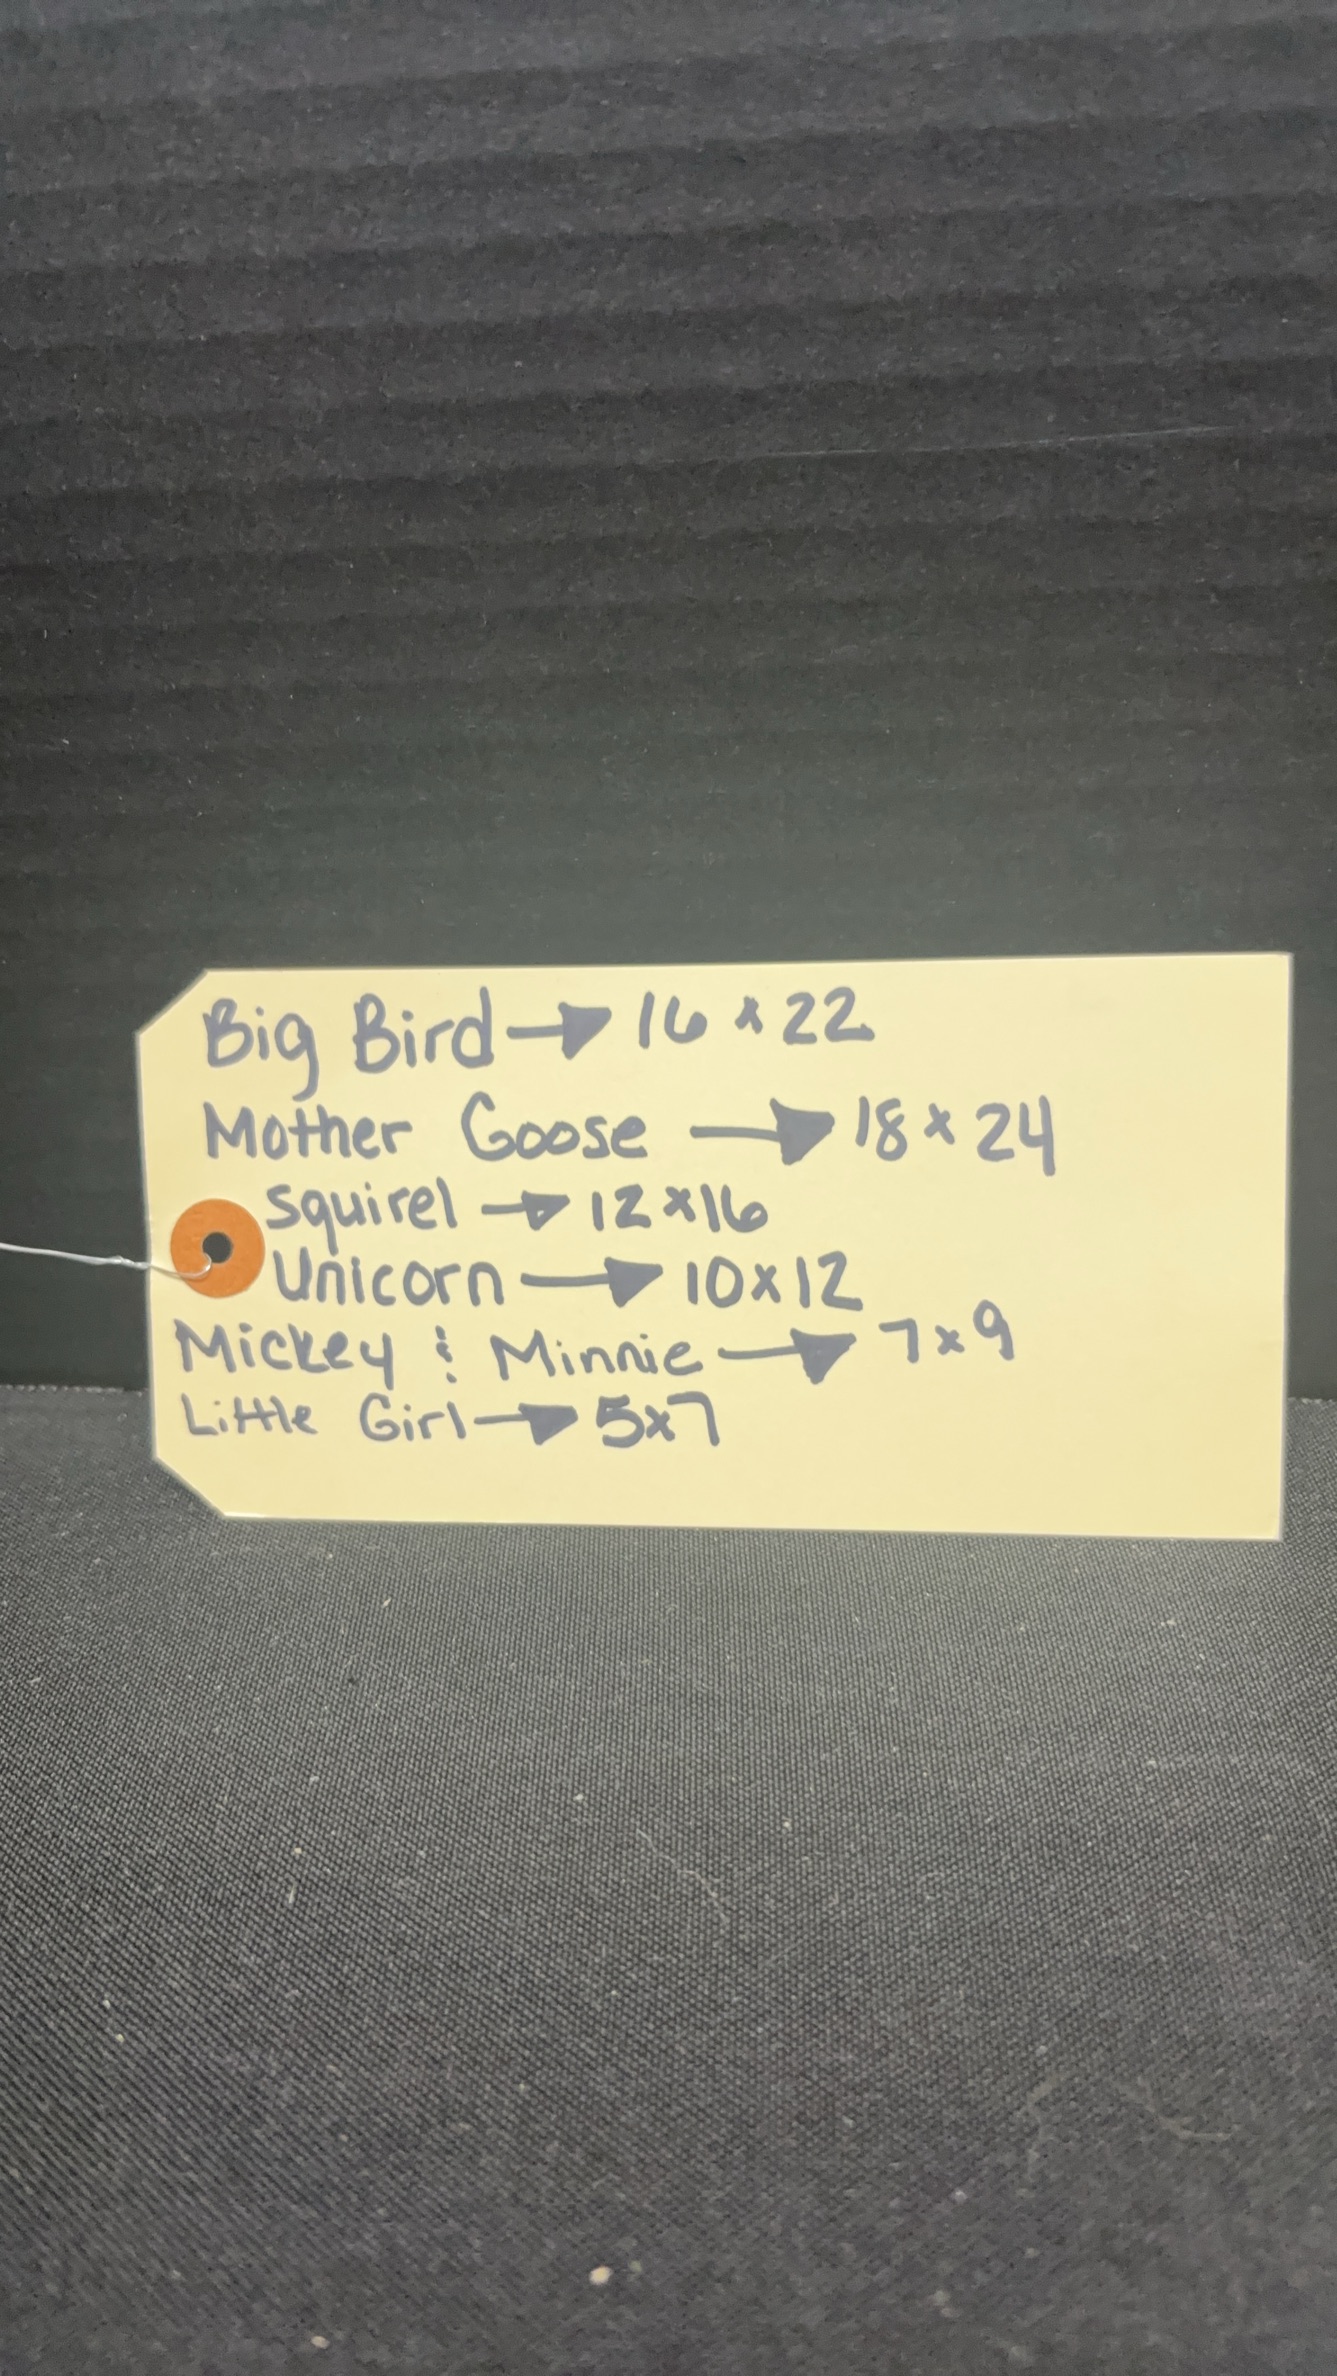 Big Bird → 16 x 22
Mother Goose → 18 x 24
Squirel → 12 x 16
Unicorn → 10 x 12
Mickey & Minnie → 7 x 9
Little Girl → 5x7